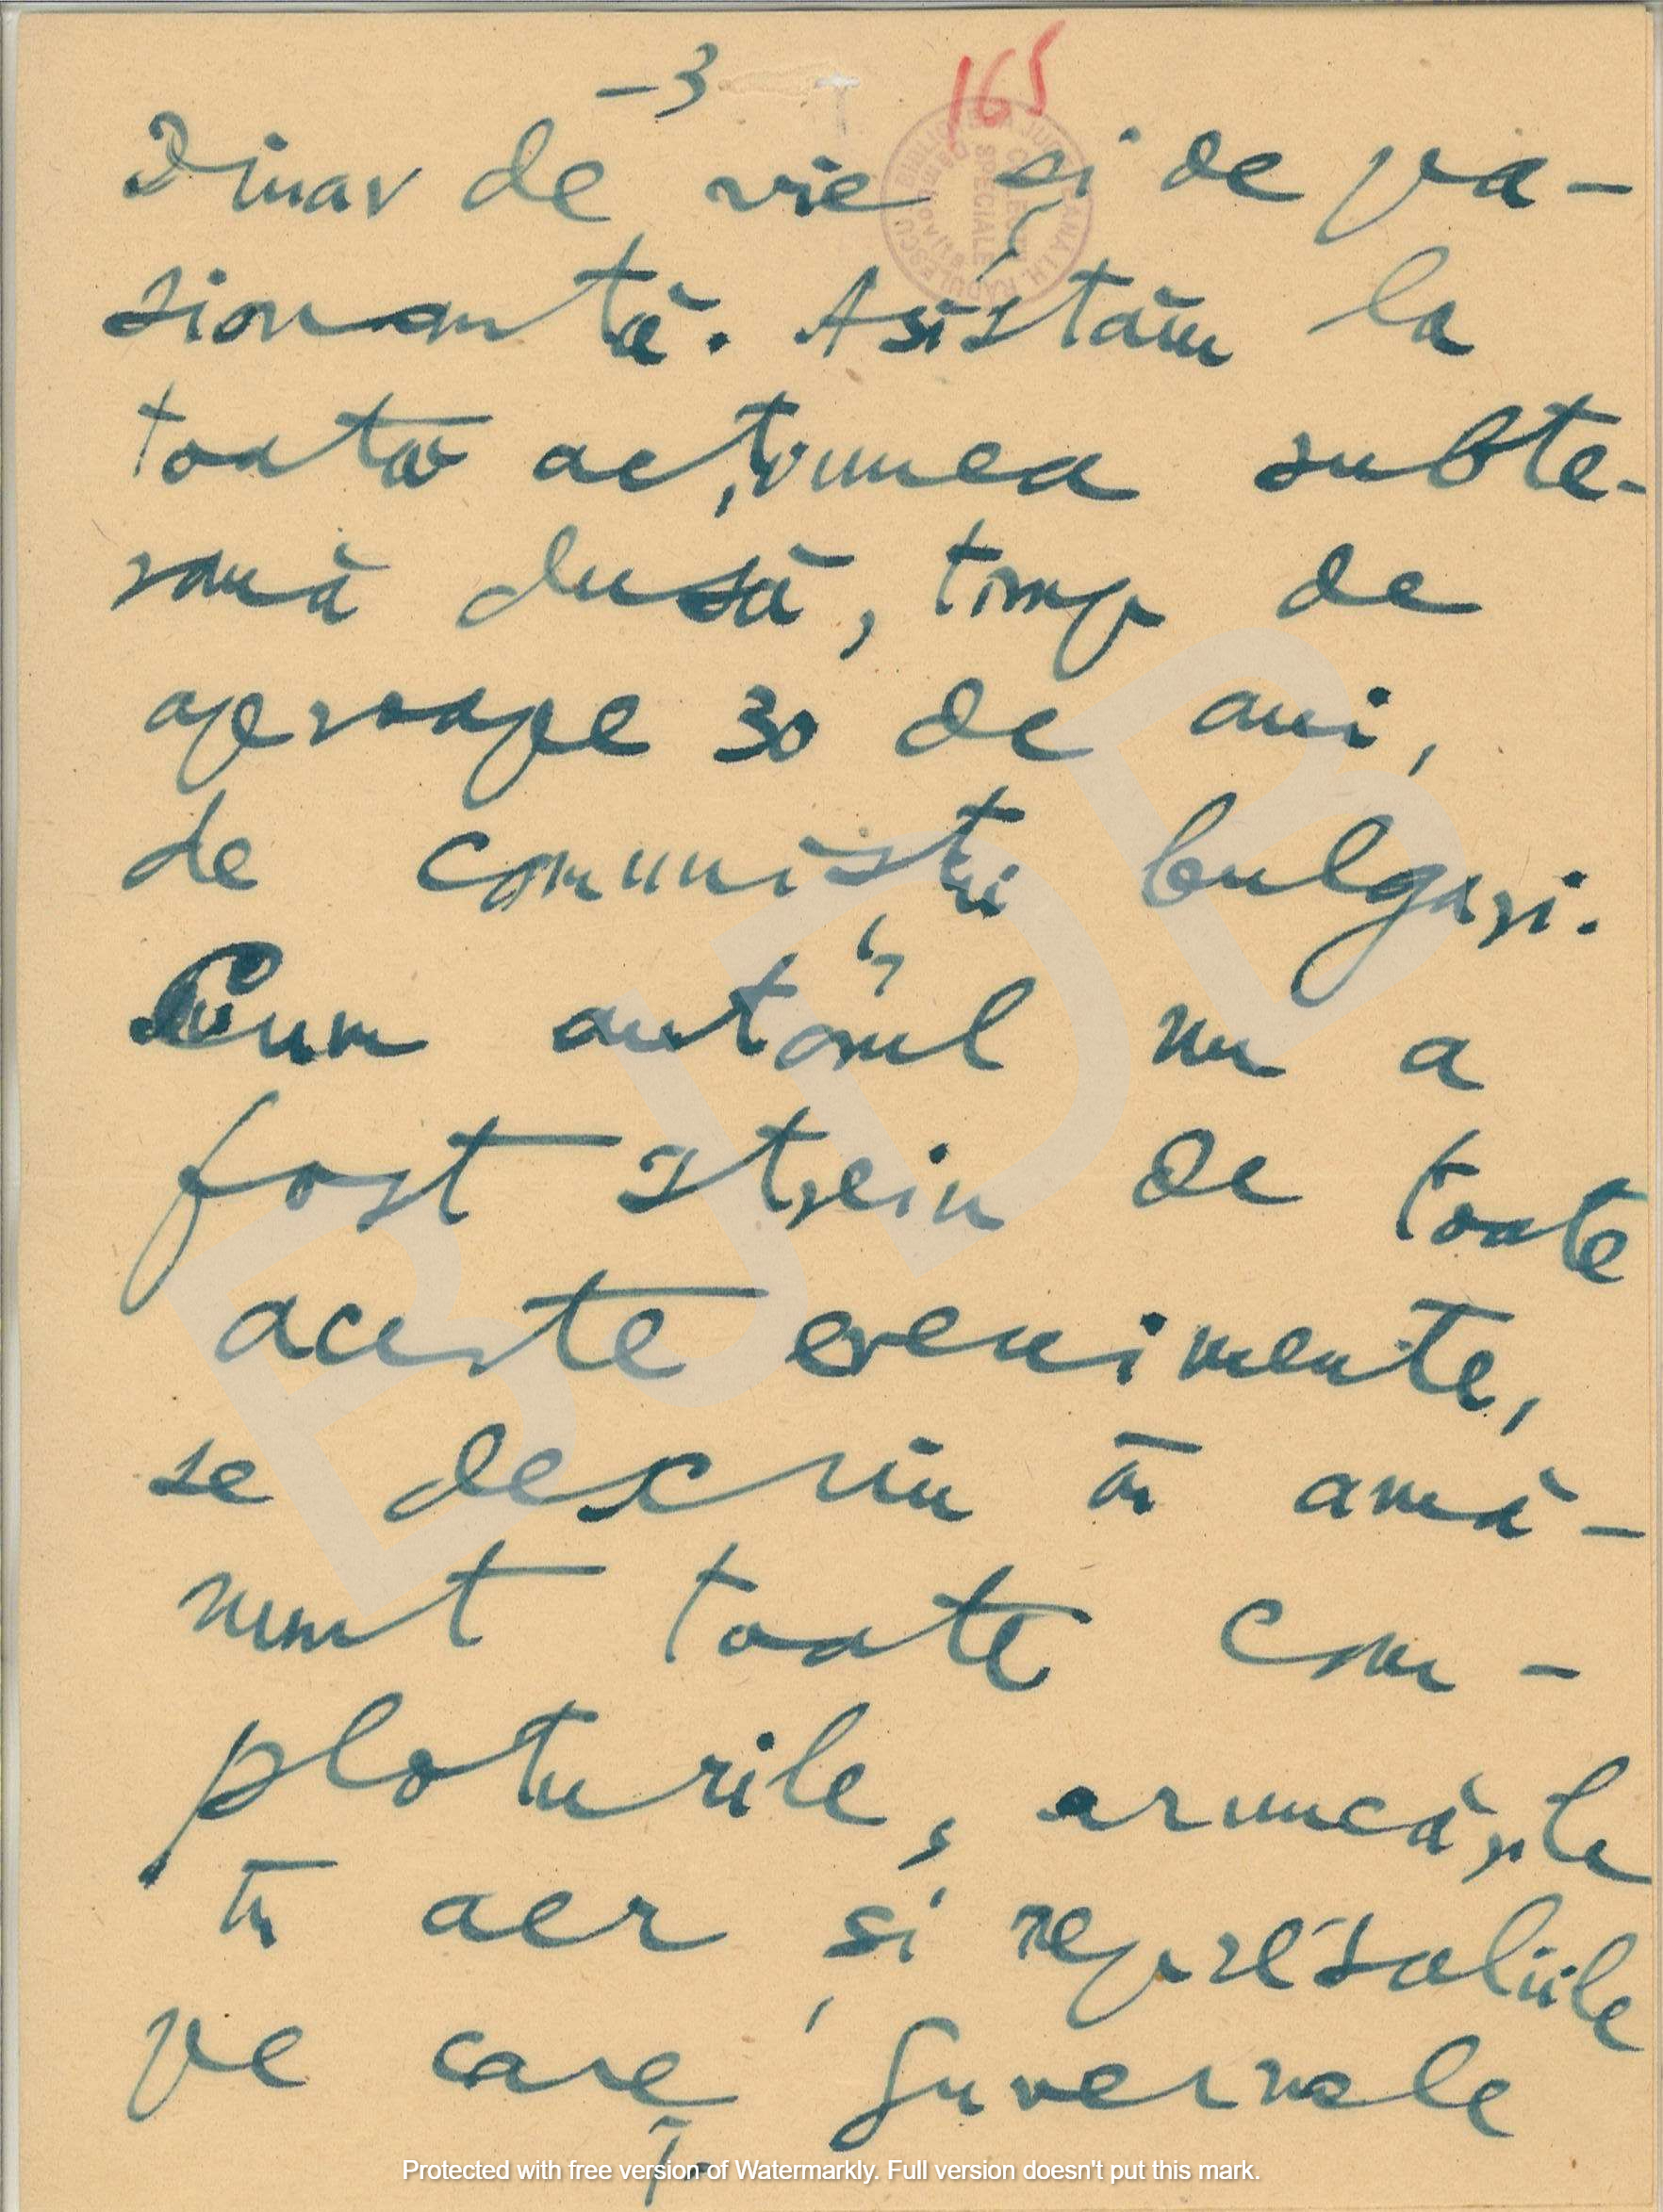 -3-
165
Dinav de vie și de pa-
sionantă. Asistăm la
toată acțiunea subte-
rană dusă, timp de
aproape 30 de ani,
de comuniștii bulgari.
Cum autorul nu a
fost strein de toate
aceste evenimente,
se descriu în amă-
nunt toate com-
ploturile, aruncările
în aer și represaliile
pe care guvernele
Protected with free version of Watermarkly. Full version doesn't put this mark.
BJDB